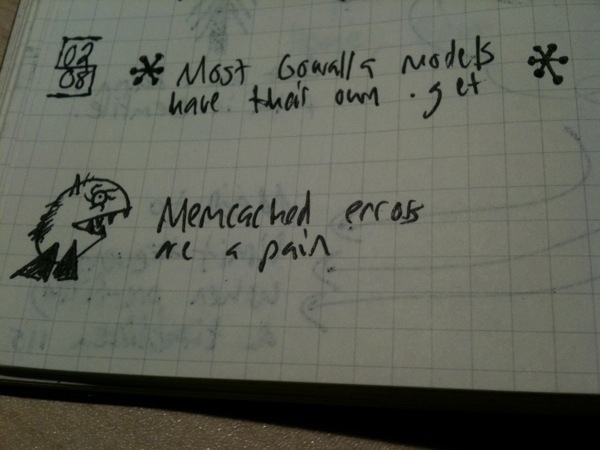 02
08
Most Gowalla models
have their own .get
Memcached errors
are a pain